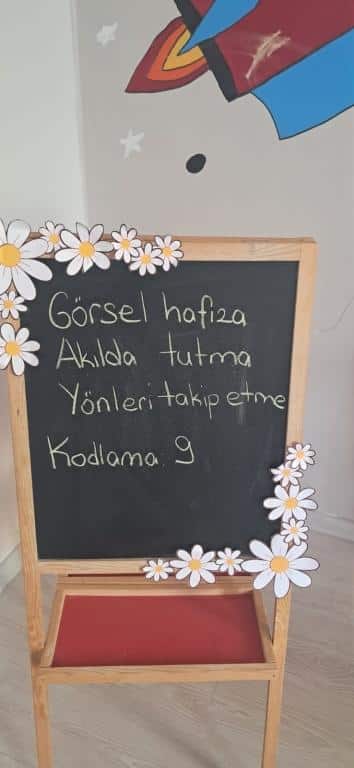 Görsel hafıza
Akılda tutma
Yönleri takip etme
Kodlama 9